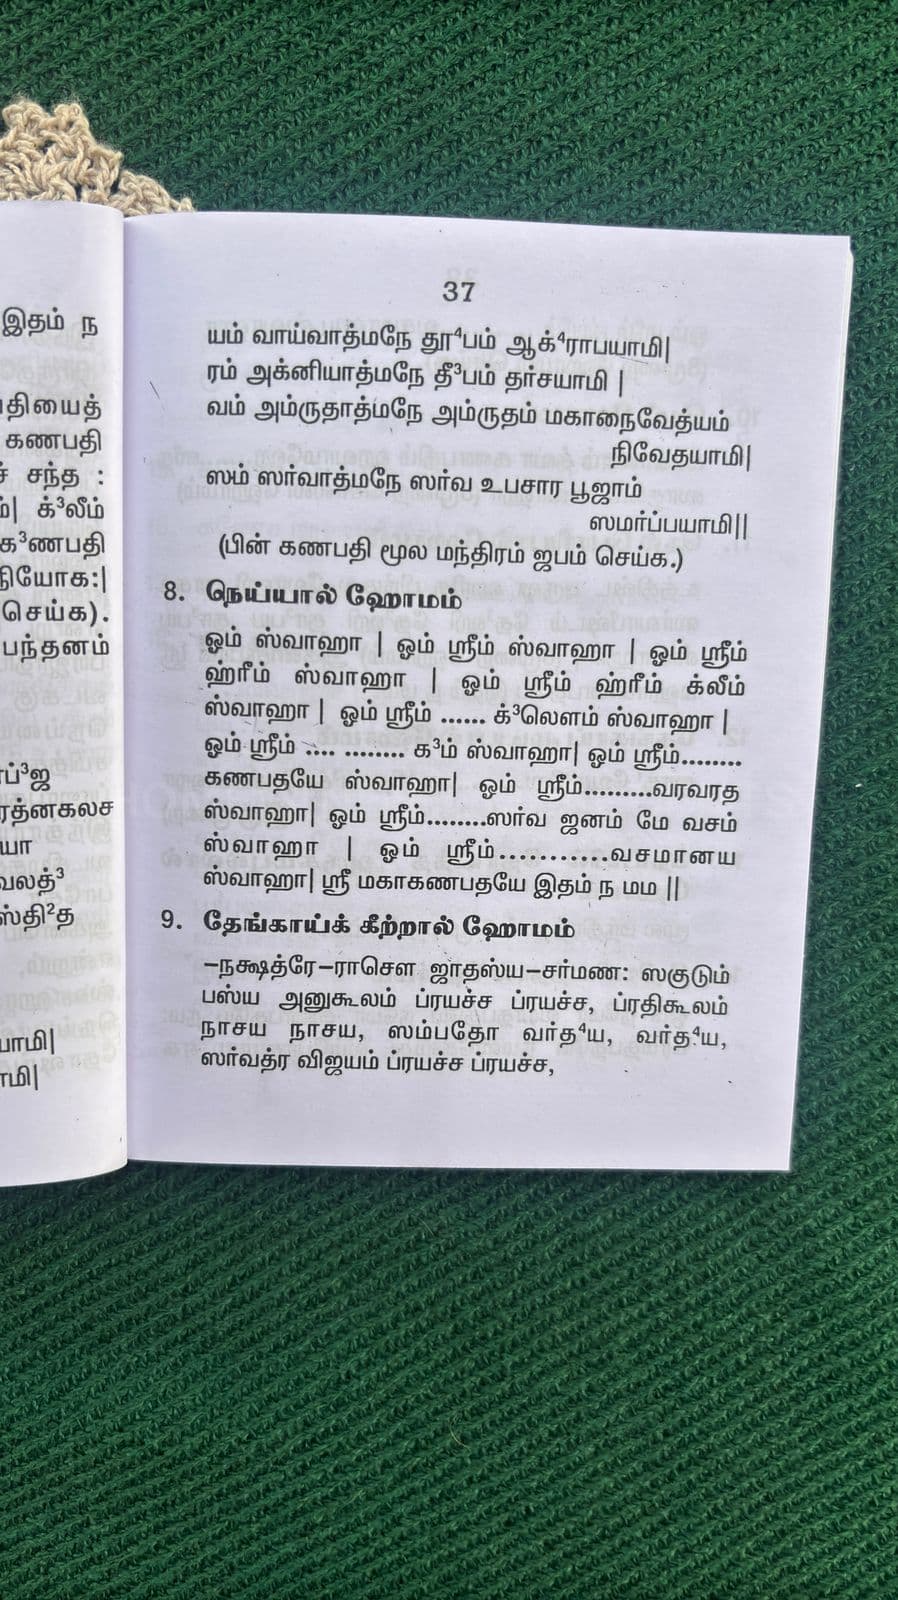 இதம் ந
பதியைத்
கணபதி
ச் சந்த :
ம்| க்³லீம்
க³ணபதி
நியோக:|
செய்க).
பந்தனம்
ப்³ஜ
ரத்னகலச
யா
வலத்³
ஸ்தி²த
யாமி|
ாமி|
37
யம் வாய்வாத்மநே தூ⁴பம் ஆக்⁴ராபயாமி|
ரம் அக்னியாத்மநே தீ³பம் தர்சயாமி |
வம் அம்ருதாத்மநே அம்ருதம் மகாநைவேத்யம்
நிவேதயாமி|
ஸம் ஸர்வாத்மநே ஸர்வ உபசார பூஜாம்
ஸமர்ப்பயாமி||
(பின் கணபதி மூல மந்திரம் ஜபம் செய்க.)
8. நெய்யால் ஹோமம்
ஓம் ஸ்வாஹா | ஓம் ஸ்ரீம் ஸ்வாஹா | ஓம் ஸ்ரீம்
ஹ்ரீம் ஸ்வாஹா | ஓம் ஸ்ரீம் ஹ்ரீம் க்லீம்
ஸ்வாஹா | ஓம் ஸ்ரீம் ...... க்³லெளம் ஸ்வாஹா |
ஓம் ஸ்ரீம் .... ......... க³ம் ஸ்வாஹா| ஓம் ஸ்ரீம்........
கணபதயே ஸ்வாஹா| ஓம் ஸ்ரீம்.........வரவரத
ஸ்வாஹா| ஓம் ஸ்ரீம்........ஸர்வ ஜனம் மே வசம்
ஸ்வாஹா | ஓம் ஸ்ரீம்...........வசமானய
ஸ்வாஹா| ஸ்ரீ மகாகணபதயே இதம் ந மம ||
9. தேங்காய்க் கீற்றால் ஹோமம்
–நக்ஷத்ரே–ராசௌ ஜாதஸ்ய–சர்மண: ஸகுடும்
பஸ்ய அனுகூலம் ப்ரயச்ச ப்ரயச்ச, ப்ரதிகூலம்
நாசய நாசய, ஸம்பதோ வர்த⁴ய, வர்த⁴ய,
ஸர்வத்ர விஜயம் ப்ரயச்ச ப்ரயச்ச,